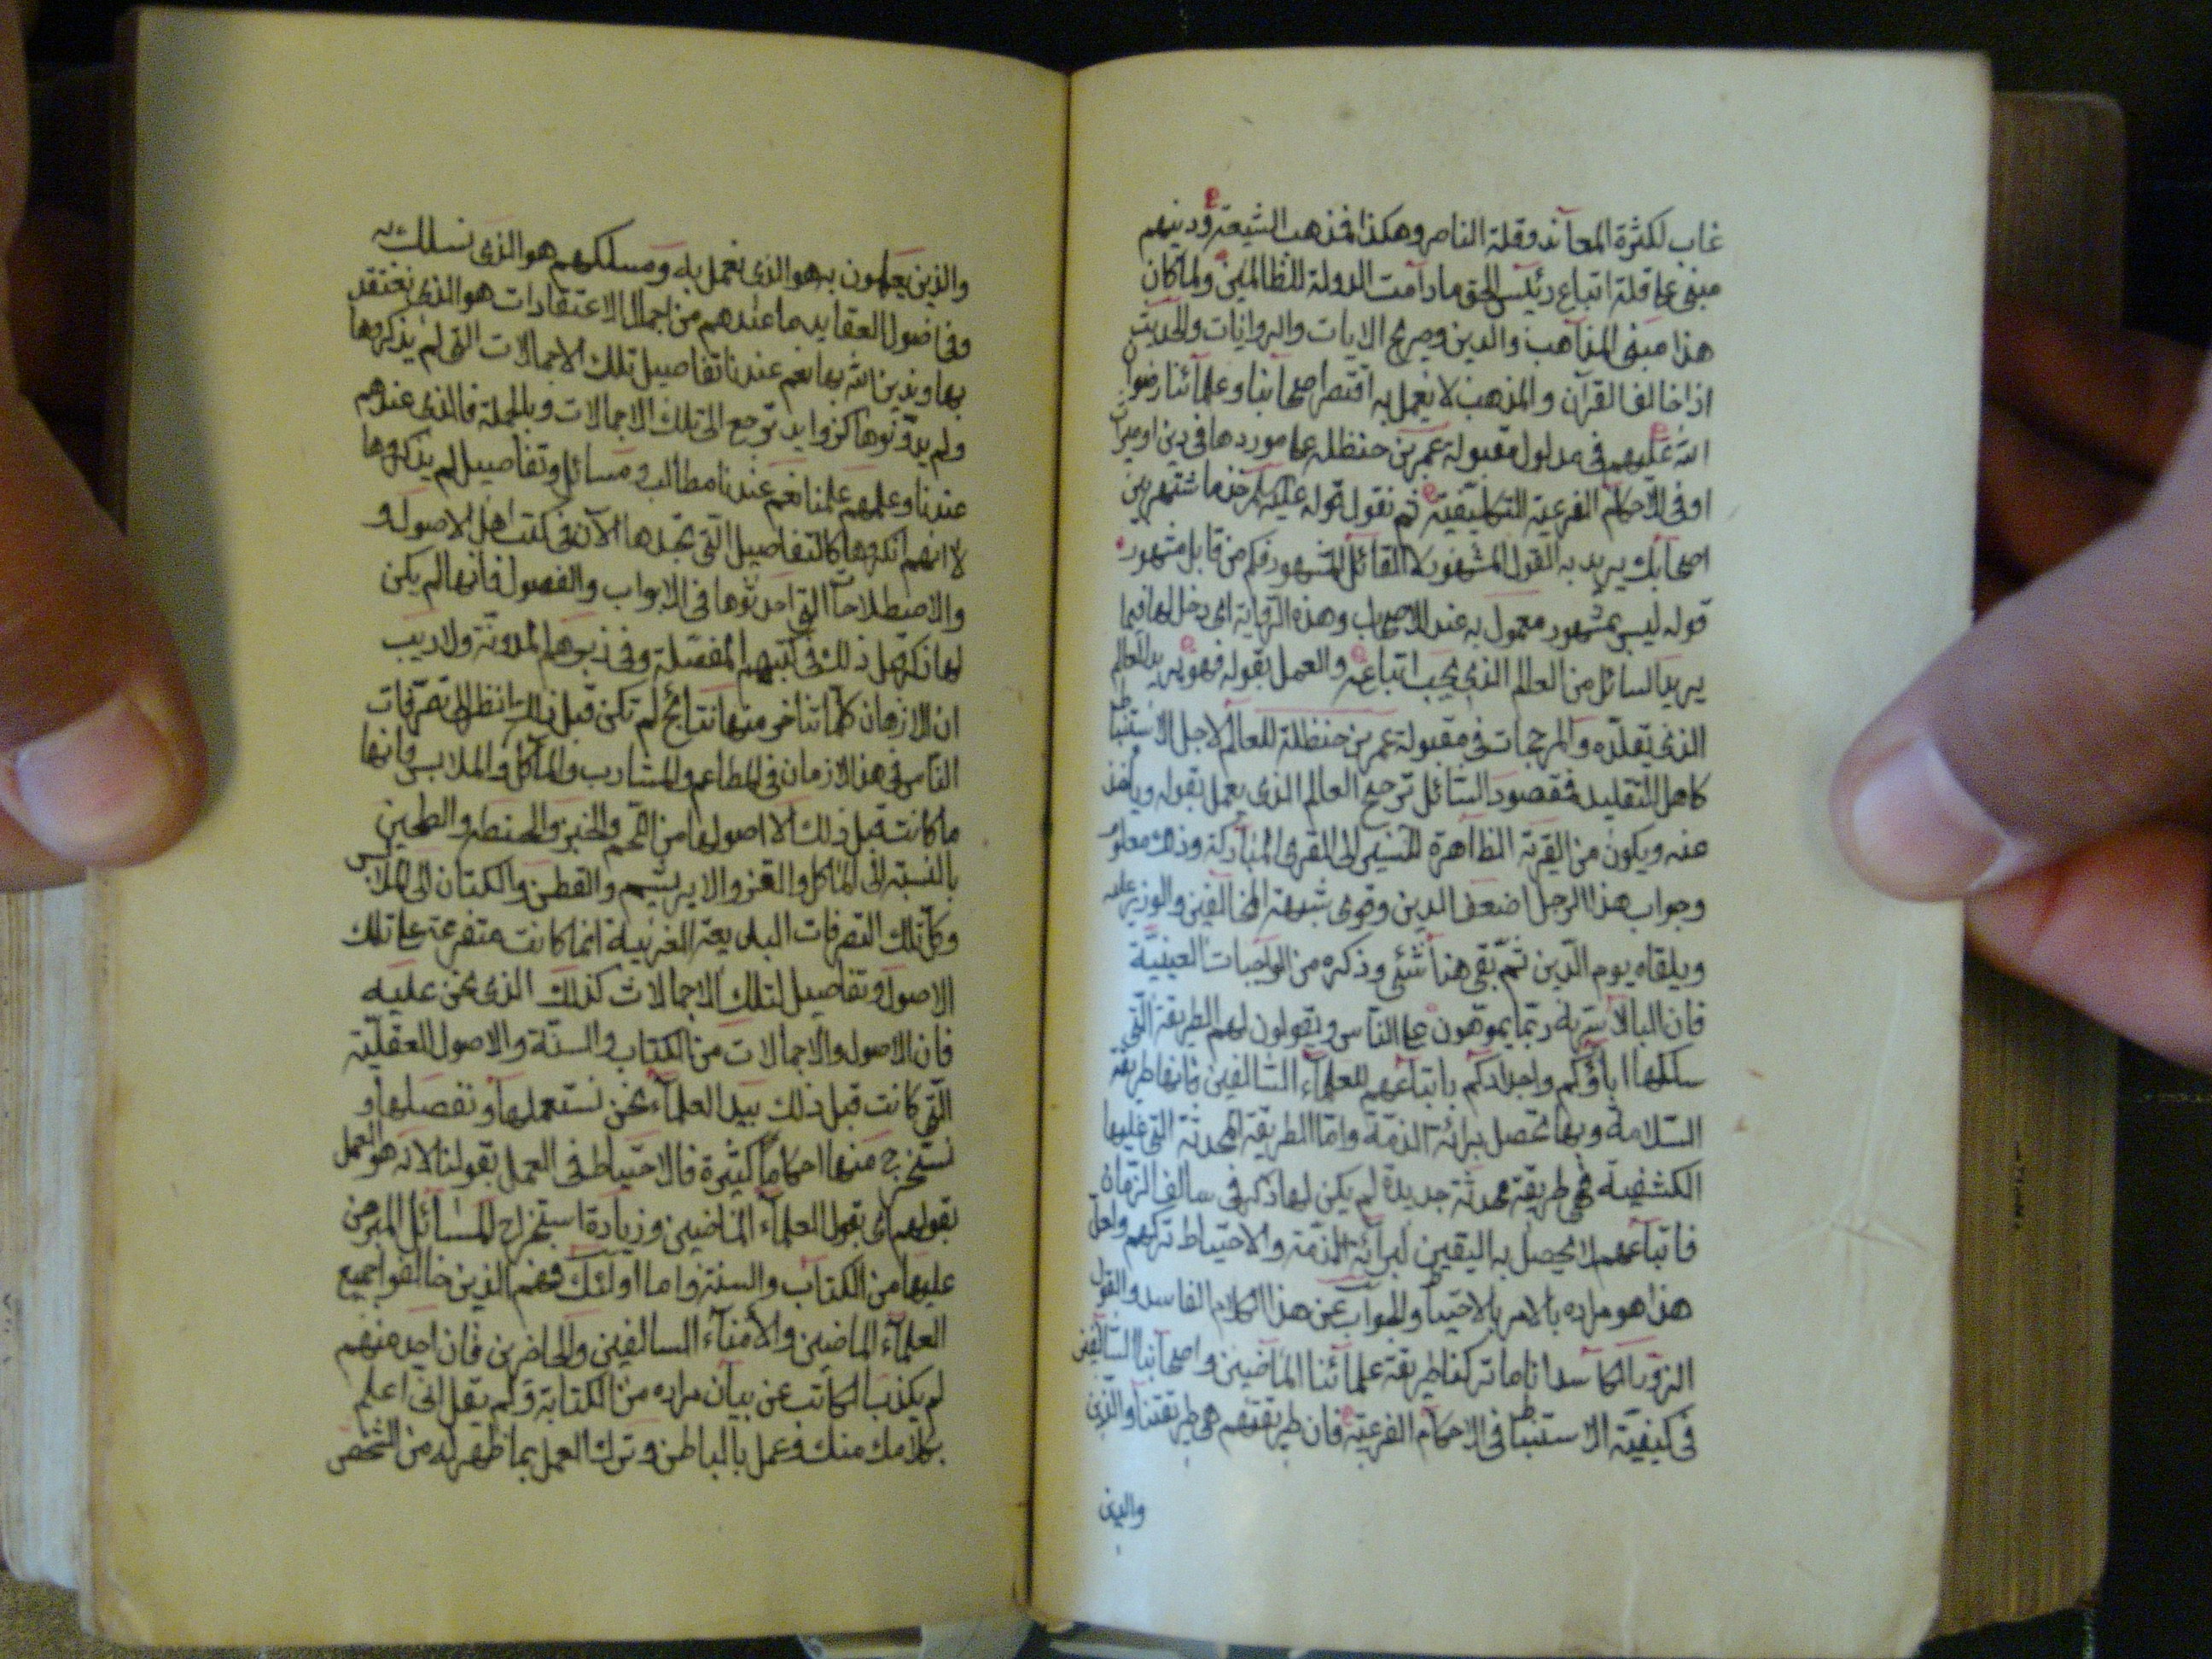 غاب لكثرة المعاند وقلة الناصر وهكذا فمذهب الشيعة ودينهم
مبنى على قلة اتباع رئيس الحق ما دامت الدولة للظالمين ولما كان
هذا مبنى المذاهب والدين وصريح الايات والروايات والحديث
اذا خالف القرآن والمذهب لا نعمل به اقتصر اصحابنا وعلمائنا رضوان
الله عليهم فى مدلول مقبولة عمر بن حنظلة على موردها فى دين او ميراث
او فى الاحكام الفرعية التكليفية ثم نقول قوله عليه خذ ما اشتهر بين
اصحابك يريد به القول المشهور لا القائل المشهور فكم من قايل مشهور
قوله ليس بمشهور معمول به عند الاصحاب وهذه الرواية اى دخل لها فيما
يريد السائل من العالم الذى يجب اتباعه والعمل بقوله فهو يريد العالم
الذى يقلده والمرجحات فى مقبولة عمر بن حنظلة للعالم لاجل الاستنباط
لا هل التقليد فمقصود السائل ترجيح العالم الذى يعمل بقوله وياخذ
عنه ويكون من القرية الظاهرة للسير الى القرى المباركة وذلك معلوم
وجواب هذا الرجل اضعف الدين وقوى شبهة المخالفين والوزر عليه
ويلقاه يوم الدين ثم بقى هنا شئ وذكره من الواجبات العينية
فان البالاسرية ربما يموهون على الناس ويقولون لهم الطريقة التى
سلكها اباؤكم واجدادكم باتباعهم للعلماء السالفين فانها طريقة
السلامة وبها تحصل برائة الذمة واما الطريقة المحدثة التى عليها
الكشفية فهى طريقة محدثة جديدة لم يكن لها ذكر فى سالف الزمان
فاتباعهم لا يحصل به اليقين لبرائة الذمة والاحتياط تركهم ولعل
هذا هو مراده بالامر بالاحتياط والجواب عن هذا الكلام الفاسد والقول
الزور الكاسد انا ما تركنا طريقة علمائنا الماضين واصحابنا السالفين
فى كيفية الاستنباط فى الاحكام الفرعية فان طريقتهم هى طريقتنا والذين
والذين
والذين يعملون به هو الذى نعمل به ومسلكهم هو الذى نسلك به
وفى اصول العقايد ما عندهم من اجمال الاعتقادات هو الذى نعتقد
بها وندين الله بها نعم عندنا تفاصيل تلك الاجمالات التى لم يذكروها
ولم يدونوها كزوايد ترجع الى تلك الاجمالات وبالجملة فالذى عندهم
عندنا وعلمهم علمنا نعم عندنا مطالب ومسائل وتفاصيل لم يذكروها
لا انهم انكروها كالتفاصيل التى تجدها الآن فى كتب اهل الاصول و
والاصطلاحات التى احدثوها فى الابواب والفصول فانها لم يكن
لها ذكر قبل ذلك فى كتبهم المفصلة وفى زبرهم المدونة ولا ريب
ان الازمان كلما تتاخر منها نتايج لم تكن قبل ذلك انظر الى تصرفات
الناس فى هذا الازمان فى المطاعم والمشارب والمآكل والملابس فانها
ما كانت قبل ذلك الا اصولها من اللحم والخبز والحنطة والطحين
بالنسبة الى المآكل والقز والابريشم والقطن والكتان الى الملابس
وكل تلك التصرفات البديعة الغريبة انما كانت متفرعة على تلك
الاصول وتفاصيل لتلك الاجمالات كذلك الذى نحن عليه
فان الاصول والاجمالات من الكتاب والسنة والاصول العقلية
التى كانت قبل ذلك بيد العلماء نحن نستعملها ونفصلها و
نستخرج منها احكاما كثيرة فالاحتياط فى العمل بقولنا لانه هو العمل
بقولهم اى بقول العلماء الماضين وزيادة استخراج المسائل المبرهن
عليها من الكتاب والسنة واما اولئك فهم الذين خالفوا جميع
العلماء الماضين والامناء السالفين والحاضرين فان احد منهم
لم يكذب الكاتب عن بيان مراده من الكتابة ولم يقل انى اعلم
بكلامك منك وعمل بالباطن وترك العمل بما ظهر له من الشخص